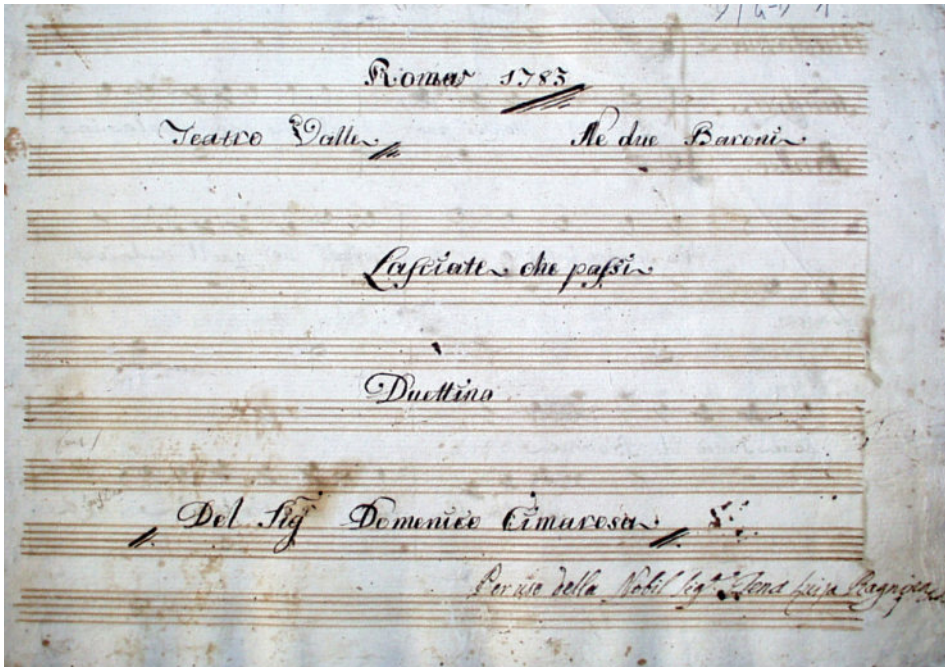 Roma 1783
Teatro Valle Ne due Baroni
Lasciate che passi
Duettino
Del Sig Domenico Cimarosa
Per uso della Nobil Sig.ra Elena Luisa